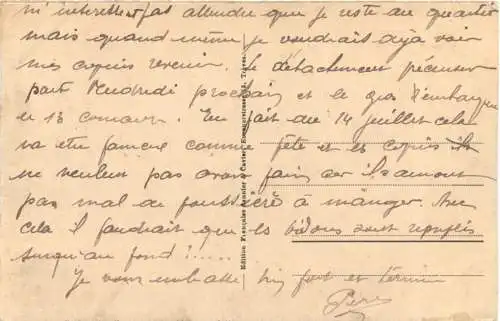 m'intéresse pas attendre que je reste au quartier
mais quand même je voudrait déja voir
mes copins revenir. Le détachement précurseur
part Vendredi prochain et le gros s'embarque
le 13 courant. En fait du 14 juillet cela
va être fameux comme fête et les copins
ne veulent pas avoir faim car ils auront
pas mal de poussière à manger. Avec
cela il faudrait que les bidons soit remplis
jusqu'au fond ?.....
Je vous embrasse bien fort et termine
Edition Française